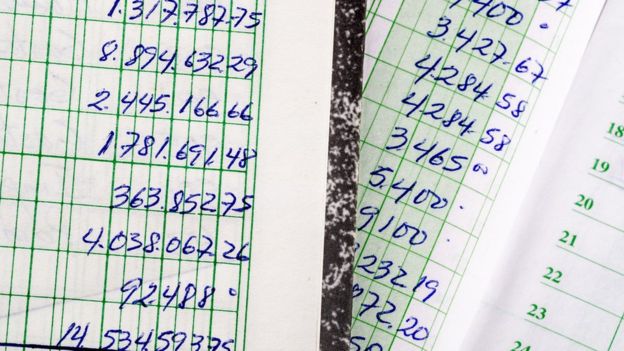 1.317.787.75
8.894.632.29
2.445.166.66
1.781.691.48
363.852.75
4.038.067.26
92488
14 534.593.75
3.427.67
4284.58
4284.58
3.465 00
5.400.
9100.
232.19
972.20
18
19
20
21
22
23
24